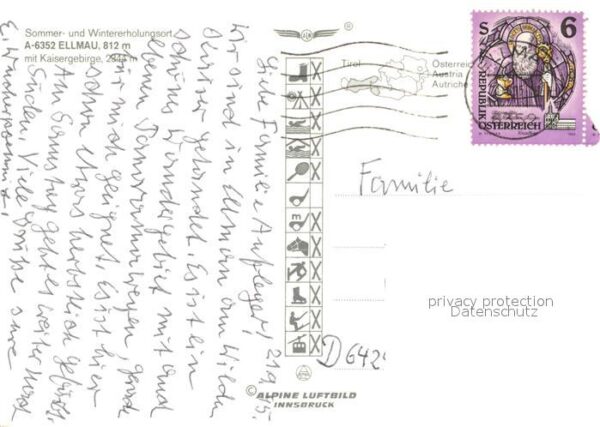 Sommer- und Wintererholungsort
A-6352 ELLMAU, 812 m
mit Kaisergebirge, 2344 m
Tirol
Österreich
Austria
Autriche
S 6
REPUBLIK
ÖSTERREICH
Liebe Familie Aufleger! 21.9.95
wir sind in Ellmau am Wilden
Kaiser gelandet. Es ist ein
schönes Wandergebiet mit und
ebenen Panoramawegen, gerade
für mich geeignet. Es ist hier
schon etwas herbstlich gefärbt.
Am Samstag geht es weiter Richt
Süden. Viele Grüße eure
Familie
m
D 642
privacy protection
Datenschutz
© ALPINE LUFTBILD
INNSBRUCK